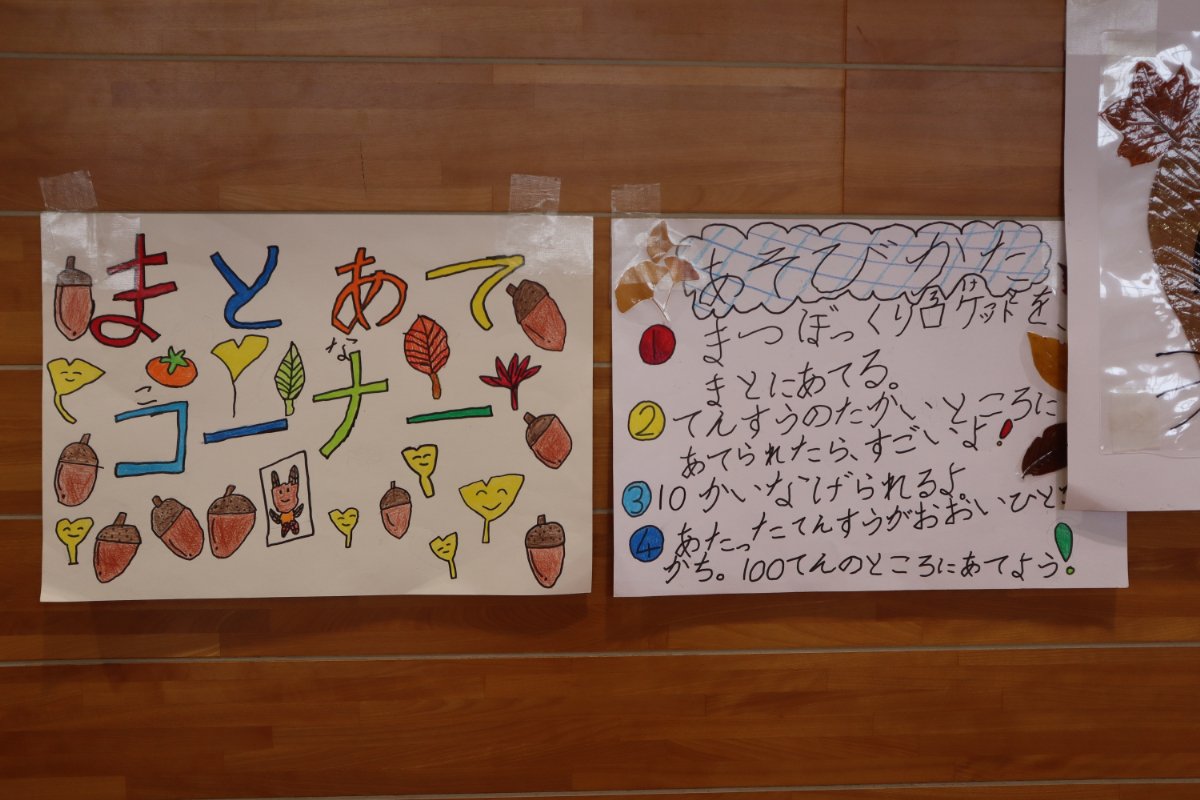 まとあて
こ な
コーナー
あそびかた
1 まつぼっくりロケットを、
まとにあてる。
2 てんすうのたかいところに
あてられたら、すごいよ!
3 10かいなげられるよ。
4 あたったてんすうがおおいひと
かち。100てんのところにあてよう!